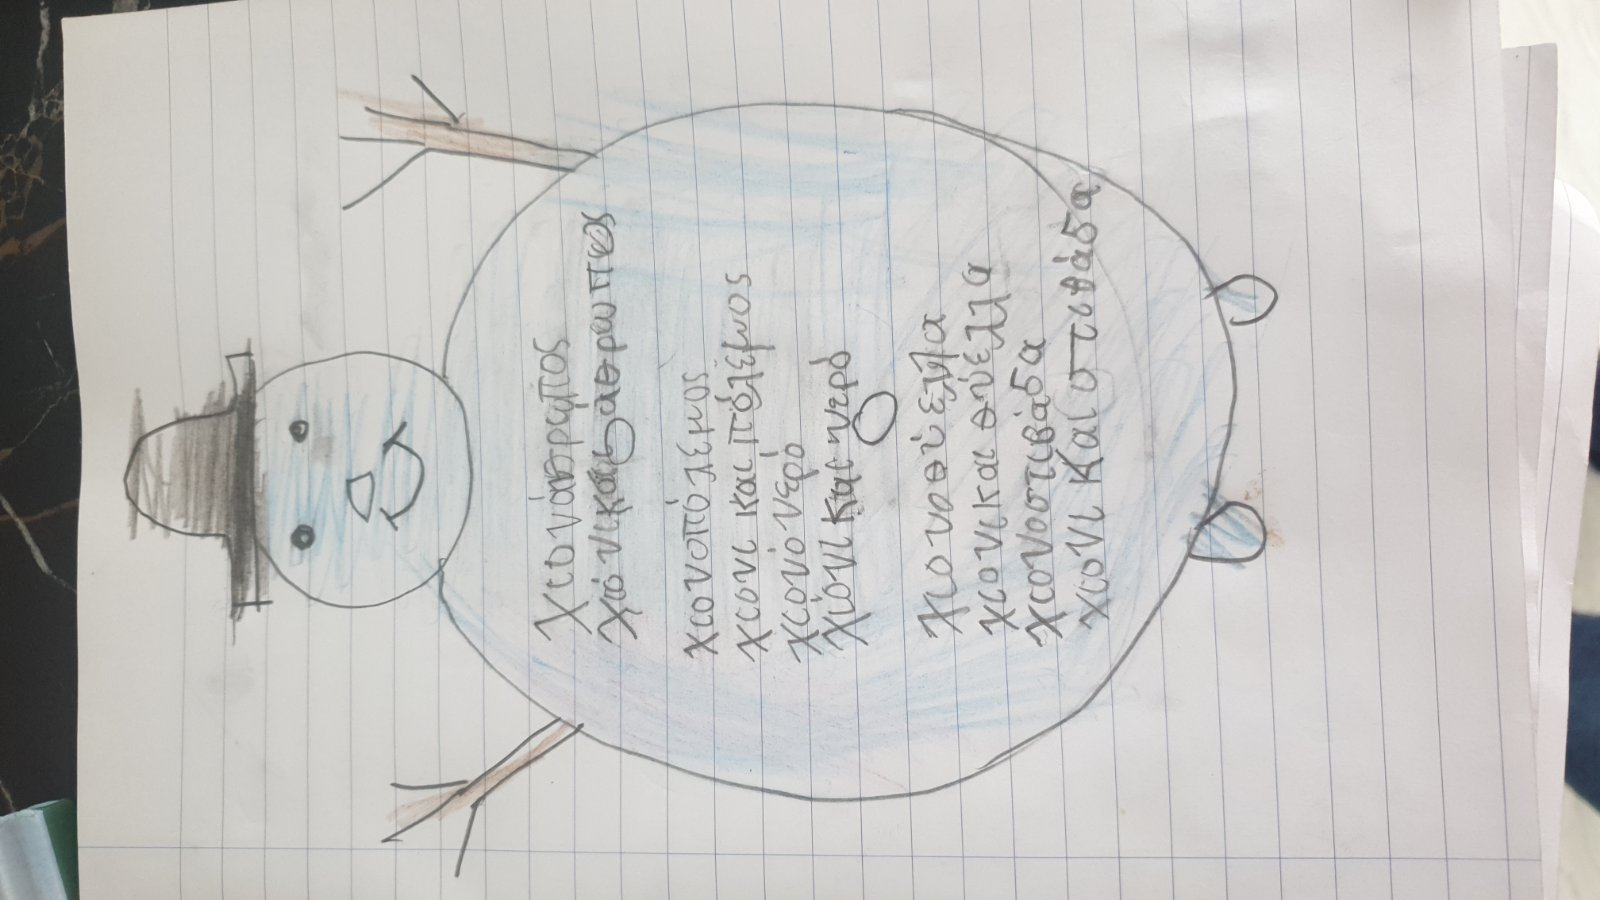 χιονάθρωπος
χιόνι και άθρωπος
χιονοπόλεμος
χιονι και πόλεμος
χιονόνερο
χιόνι και νερό
χιονοθύελλα
χιονι και θύελλα
χιονοστιβάδα
χιονι και στιβάδα